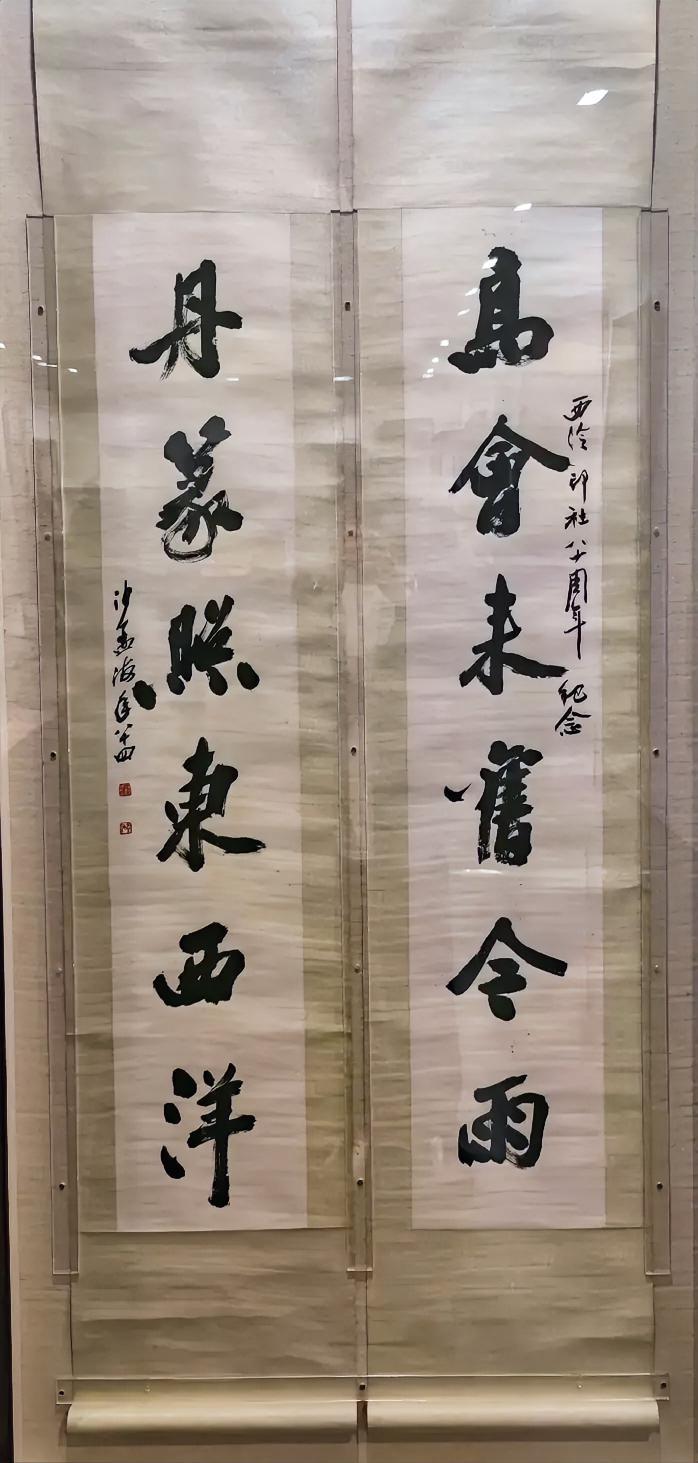 西泠印社八十周年紀念
高會来舊今雨
丹篆照東西洋
沙孟海年八十四